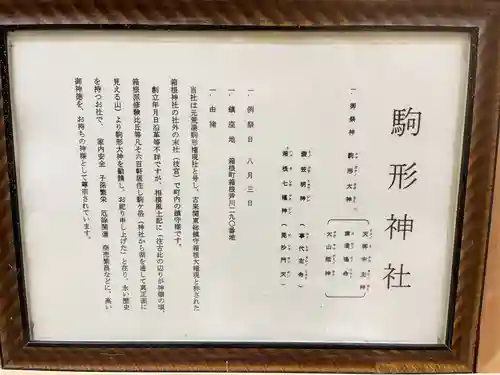 駒形神社
一、御祭神 駒形大神
天御中主神
大山祇神
蓑笠明神（事代主命）
箱根七福神（毘沙門天）
一、例祭日 八月三日
一、鎮座地 箱根町箱根芦川二九〇番地
一、由緒
当社は元荒湯駒形権現社と号し、古来関東総鎮守箱根大権現と称された
箱根神社の社外の末社（枝宮）で町内の鎮守様です。
創立年月日沿革等不詳ですが、相模風土記に「往古此の辺りが神領の頃、
箱根派修験比丘等凡そ六百軒居住し駒ケ岳（神社から湖を通して真正面に
見える山）より駒形大神を勧請し、お祀り申し上げた」と在り、永い歴史
を持つお社で、家内安全 子孫繁栄 厄除開運 商売繁昌などに、高い
御神徳を、お持ちの神様として尊崇されています。